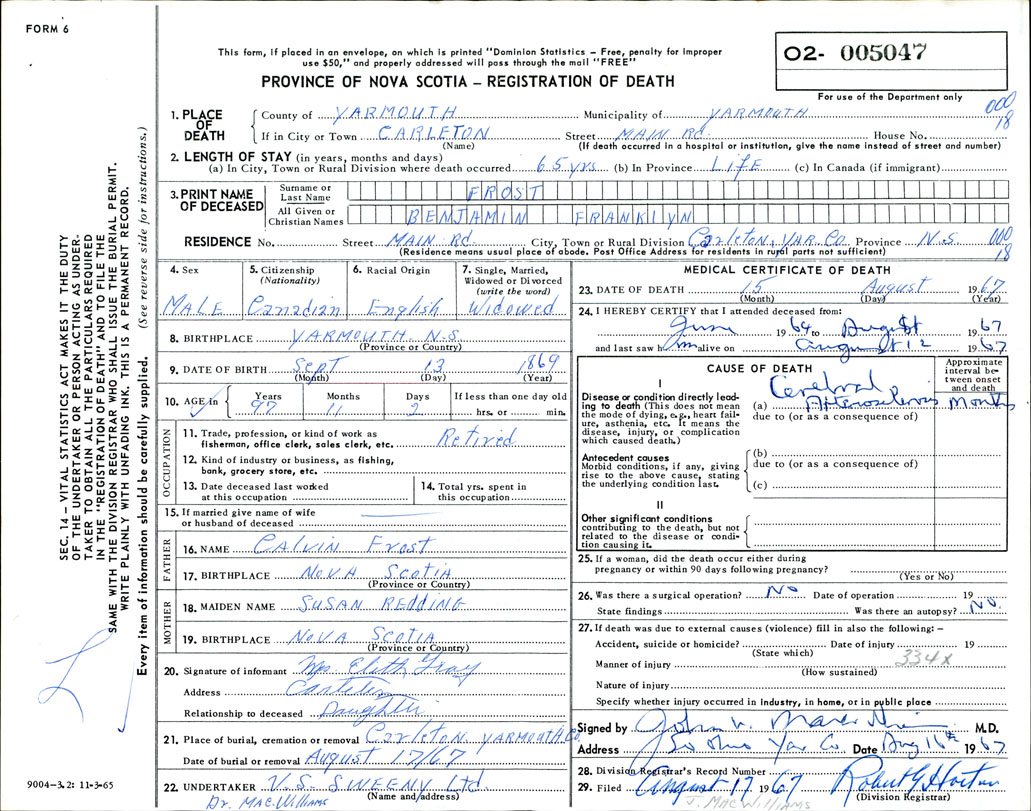 FORM 6
This form, if placed in an envelope, on which is printed "Dominion Statistics – Free, penalty for improper
use $50," and properly addressed will pass through the mail "FREE"
PROVINCE OF NOVA SCOTIA – REGISTRATION OF DEATH
02- 005047
For use of the Department only
000
18
1. PLACE OF DEATH
County of YARMOUTH Municipality of YARMOUTH
If in City or Town CARLETON Street MAIN Rd. House No.
(Name) (If death occurred in a hospital or institution, give the name instead of street and number)
2. LENGTH OF STAY (in years, months and days)
(a) In City, Town or Rural Division where death occurred 65 yrs (b) In Province LifE (c) In Canada (if immigrant)
3. PRINT NAME OF DECEASED
Surname or Last Name FROST
All Given or Christian Names BENJAMIN FRANKLYN
RESIDENCE No. Street MAIN Rd. City, Town or Rural Division Carleton, YAR. Co. Province N.S. 000
18
(Residence means usual place of abode. Post Office Address for residents in rural parts not sufficient)
4. Sex
MALE
5. Citizenship
(Nationality)
Canadian
6. Racial Origin
English
7. Single, Married,
Widowed or Divorced
(write the word)
Widowed
8. BIRTHPLACE YARMOUTH N.S.
(Province or Country)
9. DATE OF BIRTH Sept 13 1869
(Month) (Day) (Year)
10. AGE in
Years Months Days If less than one day old
97 11 2 hrs. or min.
OCCUPATION
11. Trade, profession, or kind of work as
fisherman, office clerk, sales clerk, etc. Retired
12. Kind of industry or business, as fishing,
bank, grocery store, etc.
13. Date deceased last worked
at this occupation
14. Total yrs. spent in
this occupation
15. If married give name of wife
or husband of deceased
FATHER
16. NAME CALVIN FROST
17. BIRTHPLACE NOVA SCOTIA
(Province or Country)
MOTHER
18. MAIDEN NAME SUSAN REDDING
19. BIRTHPLACE NOVA SCOTIA
(Province or Country)
20. Signature of informant Mrs. Gray
Address Carleton
Relationship to deceased Daughter
21. Place of burial, cremation or removal Carleton YARMOUTH Co.
Date of burial or removal August 17/67
22. UNDERTAKER V.S. SWEENY Ltd
(Name and address)
Dr. MacWilliams
MEDICAL CERTIFICATE OF DEATH
23. DATE OF DEATH 15 August 1967
(Month) (Day) (Year)
24. I HEREBY CERTIFY that I attended deceased from:
June 1964 to August 1967
and last saw him alive on August 12 1967
CAUSE OF DEATH
Approximate
interval be-
tween onset
and death
I
Disease or condition directly lead-
ing to death (This does not mean
the mode of dying, e.g., heart fail-
ure, asthenia, etc. It means the
disease, injury, or complication
which caused death.)
(a) Cerebral Arteriosclerosis Months
due to (or as a consequence of)
Antecedent causes
Morbid conditions, if any, giving
rise to the above cause, stating
the underlying condition last.
(b)
due to (or as a consequence of)
(c)
II
Other significant conditions
contributing to the death, but not
related to the disease or condi-
tion causing it.
25. If a woman, did the death occur either during
pregnancy or within 90 days following pregnancy?
(Yes or No)
26. Was there a surgical operation? No Date of operation 19
State findings Was there an autopsy? No.
27. If death was due to external causes (violence) fill in also the following: –
Accident, suicide or homicide? Date of injury 19
(State which) 334x
Manner of injury
(How sustained)
Nature of injury
Specify whether injury occurred in industry, in home, or in public place
Signed by John M.D.
Address Yar Co. Date Aug 16th 1967
28. Division Registrar's Record Number
29. Filed August 17 1967 Robert G. Horton
(Division Registrar)
J. MACWILLIAMS
SEC. 14 – VITAL STATISTICS ACT MAKES IT THE DUTY
OF THE UNDERTAKER OR PERSON ACTING AS UNDER-
TAKER TO OBTAIN ALL THE PARTICULARS REQUIRED
IN THE "REGISTRATION OF DEATH" AND TO FILE THE
SAME WITH THE DIVISION REGISTRAR WHO SHALL ISSUE THE BURIAL PERMIT.
WRITE PLAINLY WITH UNFADING INK. THIS IS A PERMANENT RECORD.
Every item of information should be carefully supplied. (See reverse side for instructions.)
9004-3.2: 11-3-65